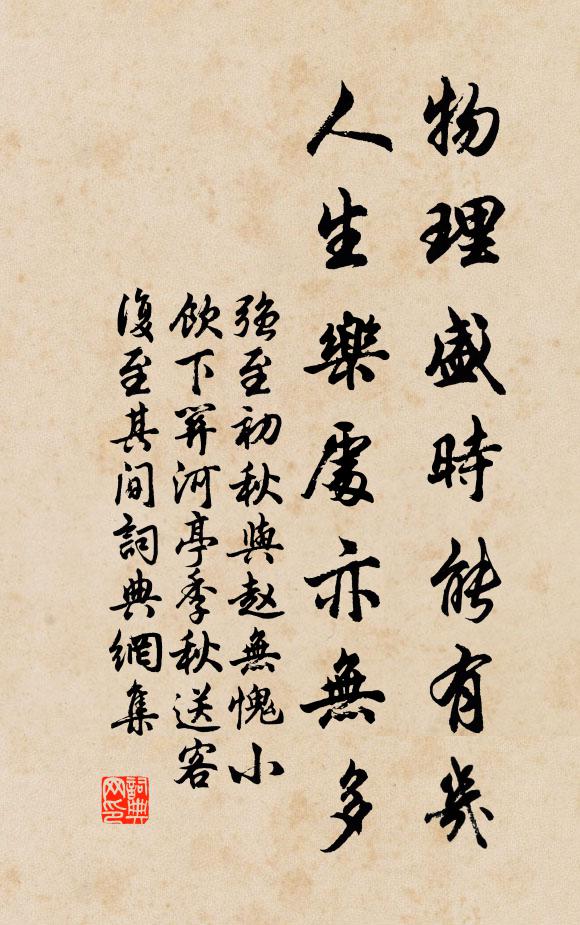 物理盛時能有幾
人生樂處亦無多
強至初秋與赵無愧小
飲下笄河亭季秋送客
復至其间詞典網集
詞典
网印